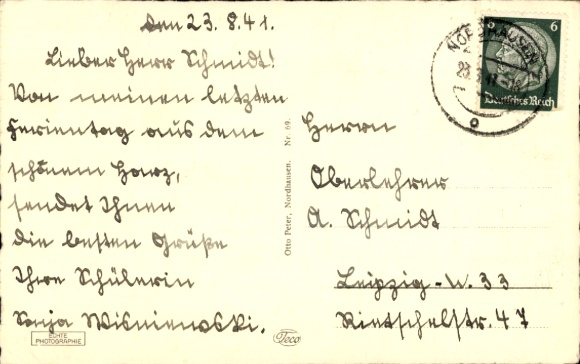 den 23.8.41.
Lieber Herr Schmidt!
Von meinen letzten
Ferientag aus dem
schönem Harz,
sendet Ihnen
die besten Grüße
Ihre Schülerin
Sonja Wisniewski.
ECHTE
PHOTOGRAPHIE
Otto Peter, Nordhausen. Nr. 69.
Teco
NORDHAUSEN
6
Deutsches Reich
Herrn
Oberlehrer
A. Schmidt
Leipzig-W. 33
Rietschelstr. 47